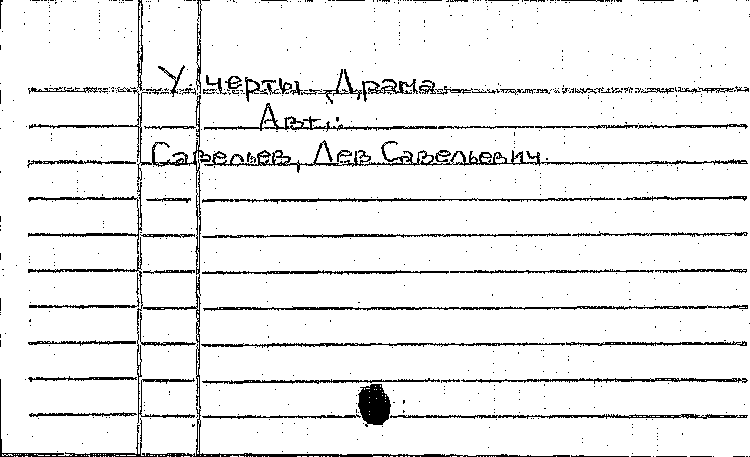 У черты. Драма.
Авт.:
Савельев, Лев Савельевич.